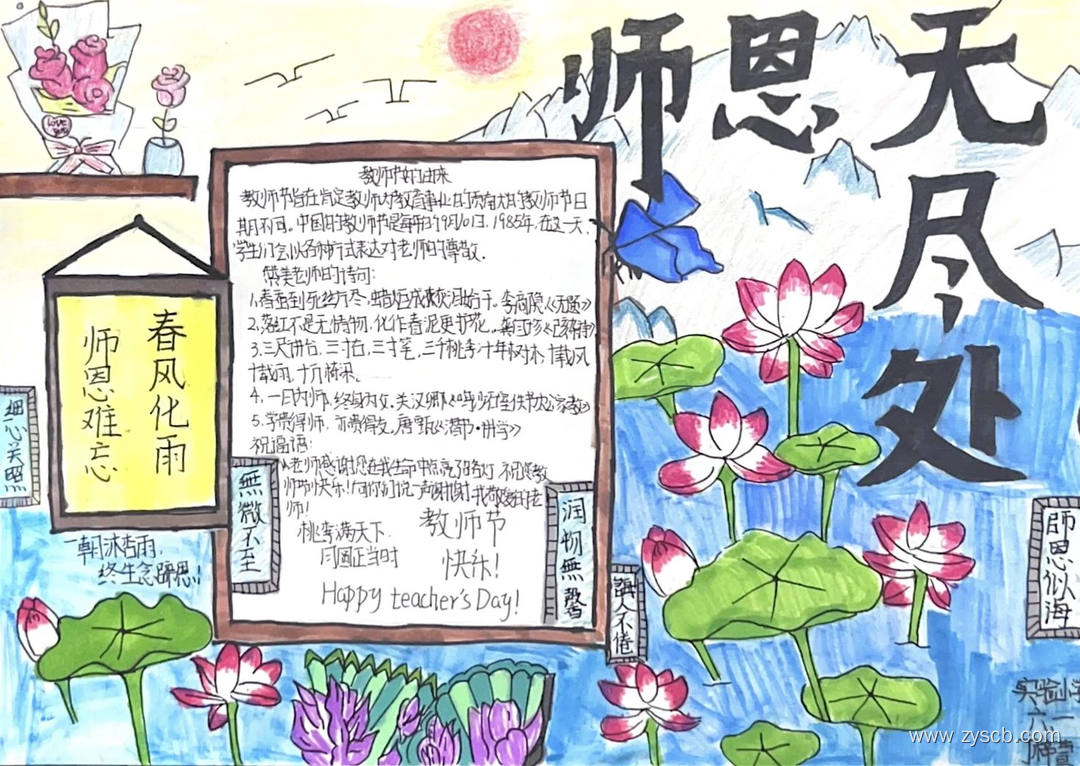 师恩无尽处
love you
教师节的由来
教师节旨在肯定教师为教育事业的贡献大的教师节日
期不同。中国的教师节是每年的9月10日.1985年,在这一天,
学生们会以各种方式表达对老师的尊敬.
赞美老师的诗句:
1.春蚕到死丝方尽,蜡炬成灰泪始干。李商隐《无题》
2.落红不是无情物,化作春泥更护花。龚自珍《己亥杂诗》
3.三尺讲台,三寸舌,三寸笔,三千桃李十年树木,十载风
十载雨,十万栋梁。
4.一日为师,终身为父。关汉卿
5.学贵得师,亦贵得友。唐甄《潜书•讲学》
祝福语:
老师感谢您在我生命中点亮了明灯 祝您教
师节快乐!向你们说一声谢谢,我敬爱的老
师!
桃李满天下
同圆正当时
教师节
快乐!
Happy teacher's Day!
春风化雨
师恩难忘
细心关照
一朝沐杏雨,
终生念师恩!
無微不至
润物無聲
誨人不倦
師恩似海
实验小学
六一
www.zyscb.com